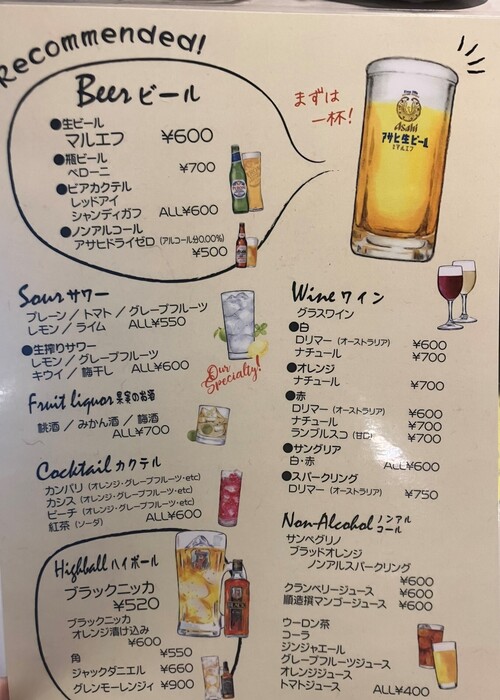 Recommended!
Beer ビール
●生ビール
マルエフ ¥600
●瓶ビール
ペローニ ¥700
●ビアカクテル
レッドアイ
シャンディガフ ALL¥600
●ノンアルコール
アサヒドライゼロ (アルコール分0.00%)
¥500
まずは
一杯!
Asahi
アサヒ生ビール
マルエフ
Sour サワー
プレーン / トマト / グレープフルーツ
レモン / ライム ALL¥550
●生搾りサワー
レモン / グレープフルーツ
キウイ / 梅干し ALL¥600
Our
Specialty!
Fruit liquor 果実のお酒
桃酒 / みかん酒 / 梅酒
ALL¥700
Cocktail カクテル
カンパリ (オレンジ・グレープフルーツ・etc)
カシス (オレンジ・グレープフルーツ・etc)
ピーチ (オレンジ・グレープフルーツ・etc)
紅茶 (ソーダ) ALL¥600
Highball ハイボール
ブラックニッカ
¥520
ブラックニッカ
オレンジ漬け込み
¥600
角 ¥550
ジャックダニエル ¥660
グレンモーレンジィ ¥900
Wine ワイン
グラスワイン
●白
ロリマー (オーストラリア) ¥600
ナチュール ¥700
●オレンジ
ナチュール ¥700
●赤
ロリマー (オーストラリア) ¥600
ナチュール ¥700
ランブルスコ (甘口) ¥700
●サングリア
白・赤 ALL¥600
●スパークリング
ロリマー (オーストラリア) ¥750
Non-Alcohol ノンアル
コール
サンペグリノ
ブラッドオレンジ
ノンアルスパークリング
¥600
クランベリージュース ¥600
順造撰マンゴージュース ¥600
ウーロン茶
コーラ
ジンジャエール
グレープフルーツジュース
オレンジジュース
トマトジュース ALL¥400